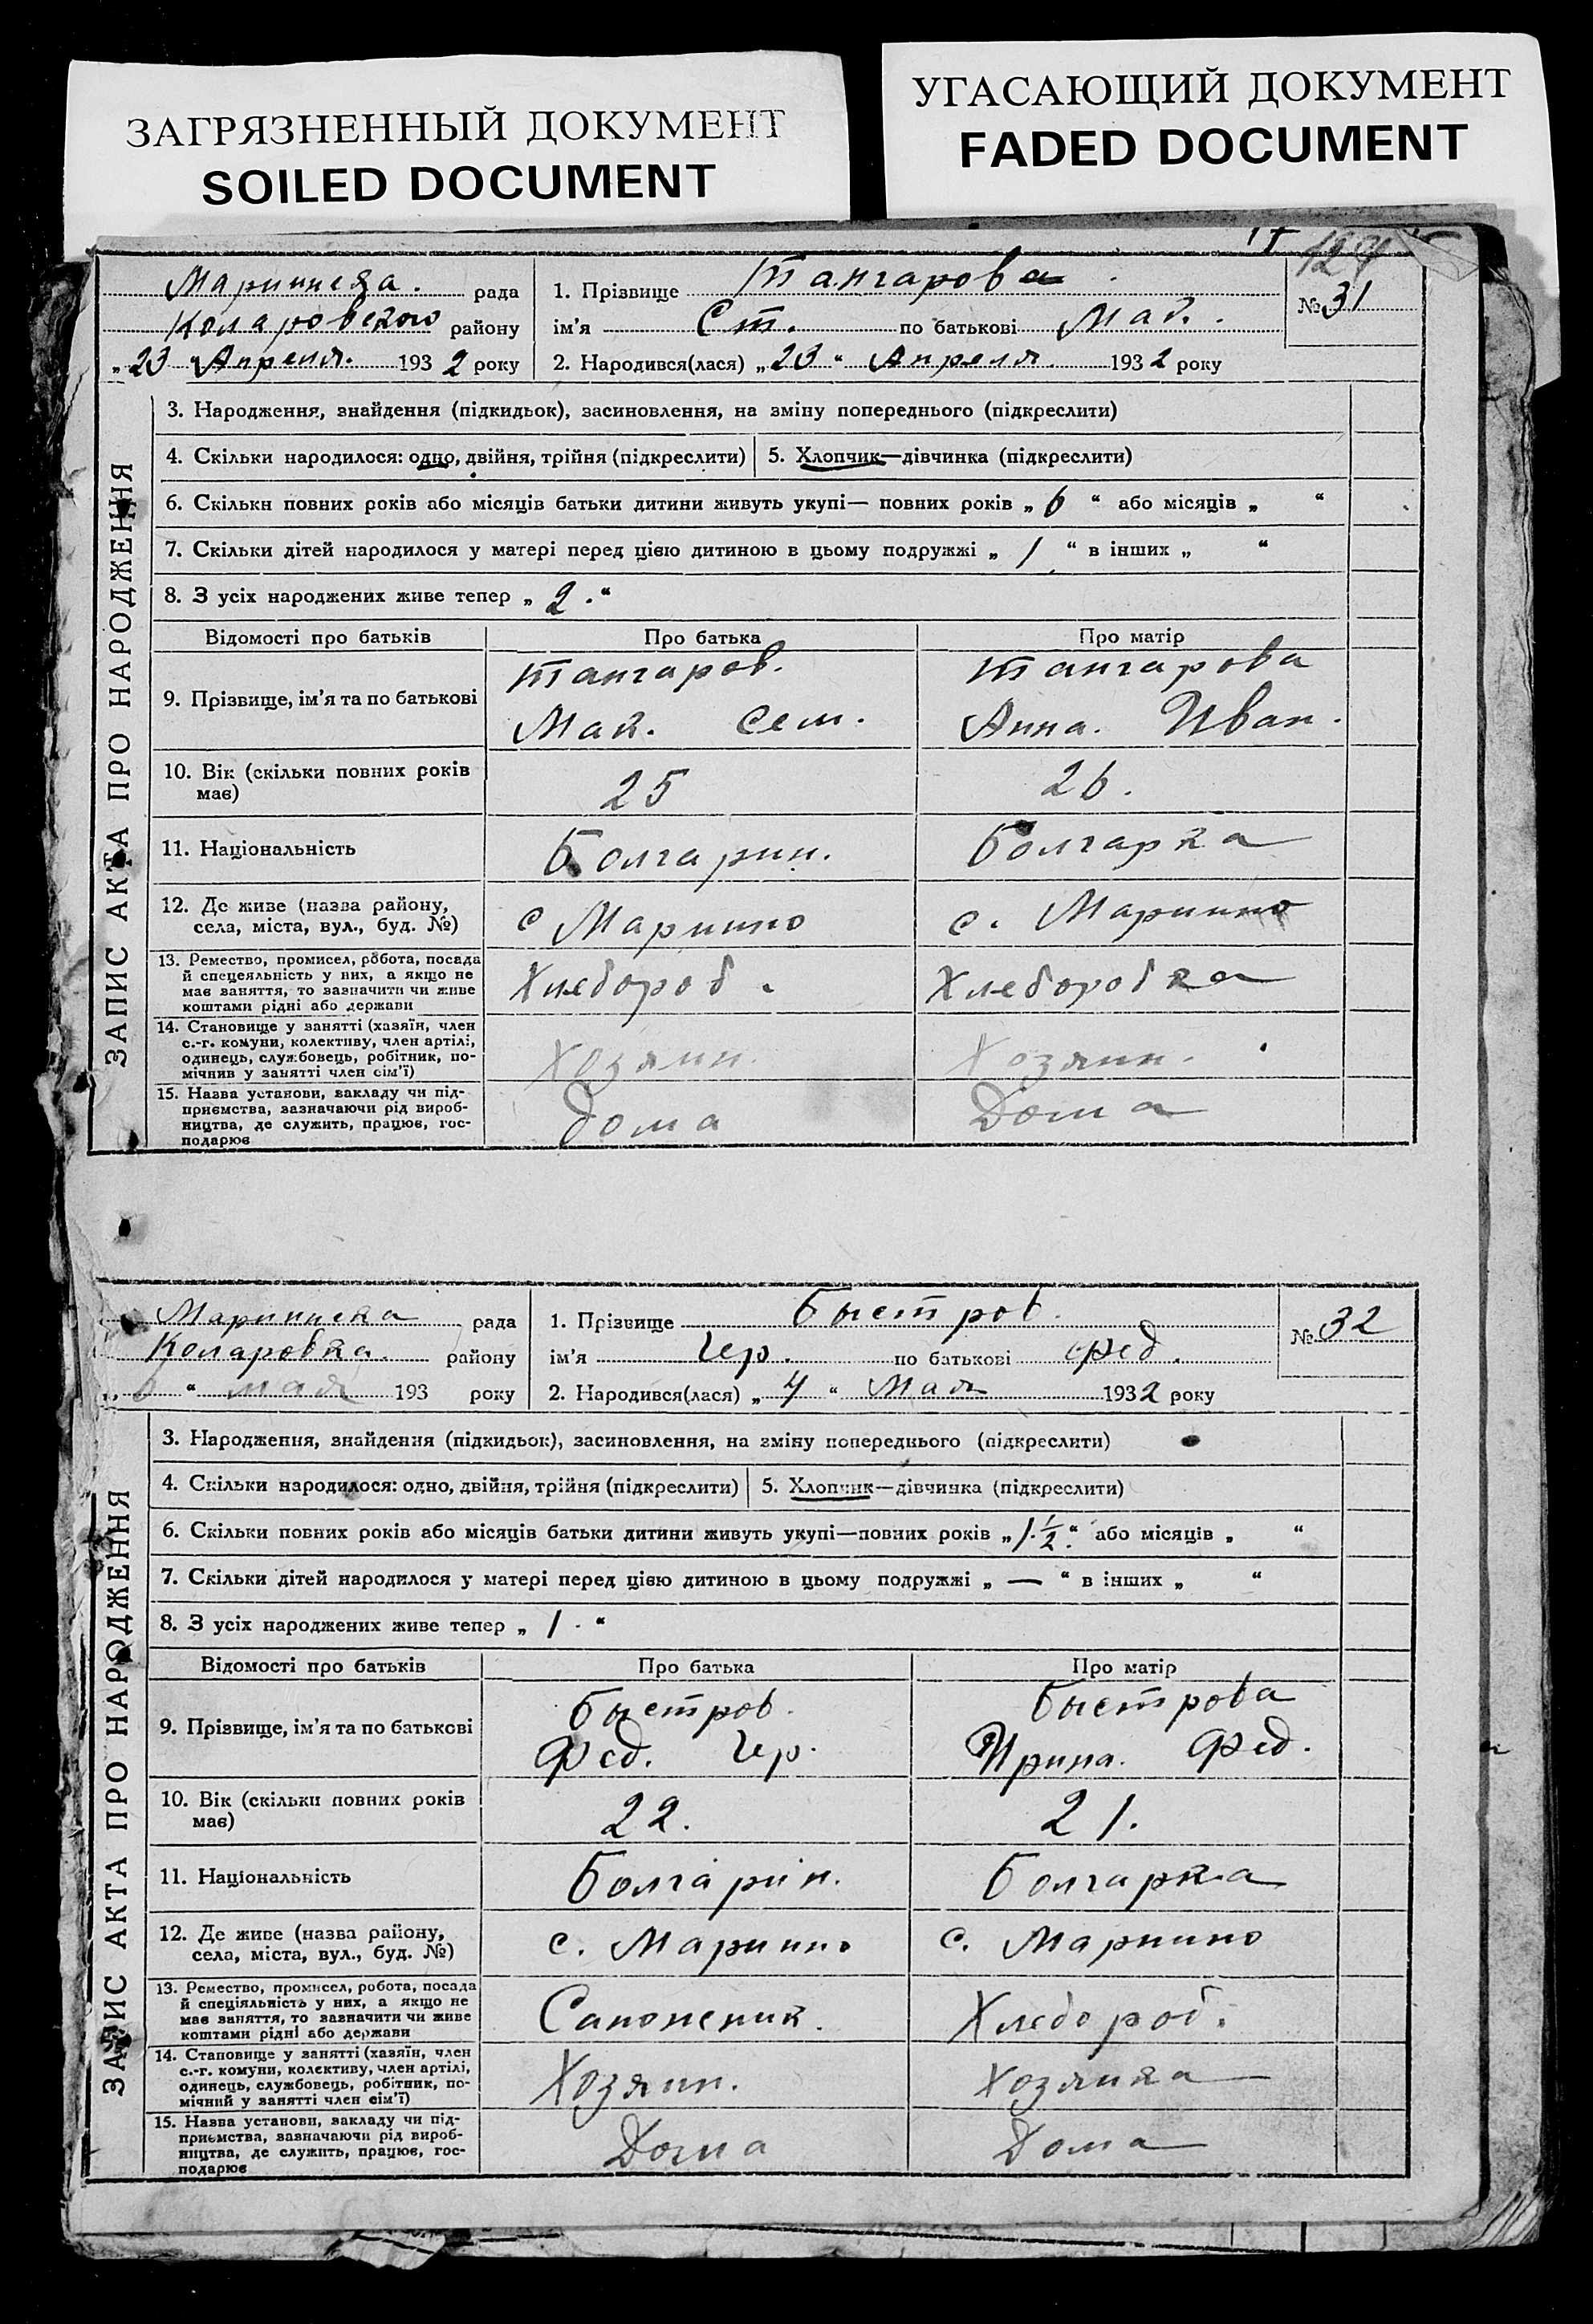 ЗАГРЯЗНЕННЫЙ ДОКУМЕНТ
SOILED DOCUMENT
УГАСАЮЩИЙ ДОКУМЕНТ
FADED DOCUMENT
Мариинска. рада
Коларовского району
„23“ Апреля. 1932 року
1. Прізвище Тангарова
ім'я Ст. по батькові Мак.
2. Народився(лася) „23“ Апреля 1932 року
№ 31
ЗАПИС АКТА ПРО НАРОДЖЕННЯ
3. Народження, знайдення (підкидьок), засиновлення, на зміну попереднього (підкреслити)
4. Скільки народилося: одно, двійня, трійня (підкреслити) 5. Хлопчик—дівчинка (підкреслити)
6. Скільки повних років або місяців батьки дитини живуть укупі— повних років „6“ або місяців „ “
7. Скільки дітей народилося у матері перед цією дитиною в цьому подружжі „1“ в інших „ “
8. З усіх народжених живе тепер „2.“
Відомості про батьків Про батька Про матір
9. Прізвище, ім'я та по батькові Тангаров. Тангарова
Мак. Сем. Анна. Иван.
10. Вік (скільки повних років
має) 25 26.
11. Національність Болгарин. Болгарка
12. Де живе (назва району,
села, міста, вул., буд. №) с Мариино с. Мариино
13. Ремество, промисел, робота, посада
й спецеяльність у них, а якщо не
має заняття, то зазначити чи живе
коштами рідні або держави Хлебороб. Хлеборобка
14. Становище у занятті (хазяїн, член
с.-г. комуни, колективу, член артілі,
одинець, службовець, робітник, по-
мічнив у занятті член сім'ї) Хозяин. Хозяин.
15. Назва установи, вакладу чи під-
приємства, зазначаючи рід вироб-
ництва, де служить, працює, гос-
подарює Дома Дома
Мариинска рада
Коларовка. району
“ мая 193 року
1. Прізвище Быстров.
ім'я Гер. по батькові Фед.
2. Народився(лася) „4“ Мая 1932 року
№ 32
ЗАПИС АКТА ПРО НАРОДЖЕННЯ
3. Народження, знайдення (підкидьок), засиновлення, на зміну попереднього (підкреслити)
4. Скільки народилося: одно, двійня, трійня (підкреслити) 5. Хлопчик—дівчинка (підкреслити)
6. Скільки повних років або місяців батьки дитини живуть укупі—повних років „1.½.“ або місяців „ “
7. Скільки дітей народилося у матері перед цією дитиною в цьому подружжі „—“ в інших „ “
8. З усіх народжених живе тепер „1.“
Відомості про батьків Про батька Про матір
9. Прізвище, ім'я та по батькові Быстров. Быстрова
Фед. Гер. Ирина. Фед.
10. Вік (скільки повних років
має) 22. 21.
11. Національність Болгарин. Болгарка
12. Де живе (назва району,
села, міста, вул., буд. №) с. Мариино с. Мариино
13. Ремество, промисел, робота, посада
й спеціяльність у них, а якщо не
має заняття, то зазначити чи живе
коштами рідні або держави Сапожник. Хлебороб.
14. Становище у занятті (хазяїн, член
с.-г. комуни, колективу, член артілі,
одинець, службовець, робітник, по-
мічний у занятті член сім'ї) Хозяин. Хозяйка
15. Назва установи, вакладу чи під-
приємства, зазначаючи рід вироб-
ництва, де служить, працює, гос-
подарює Дома Дома